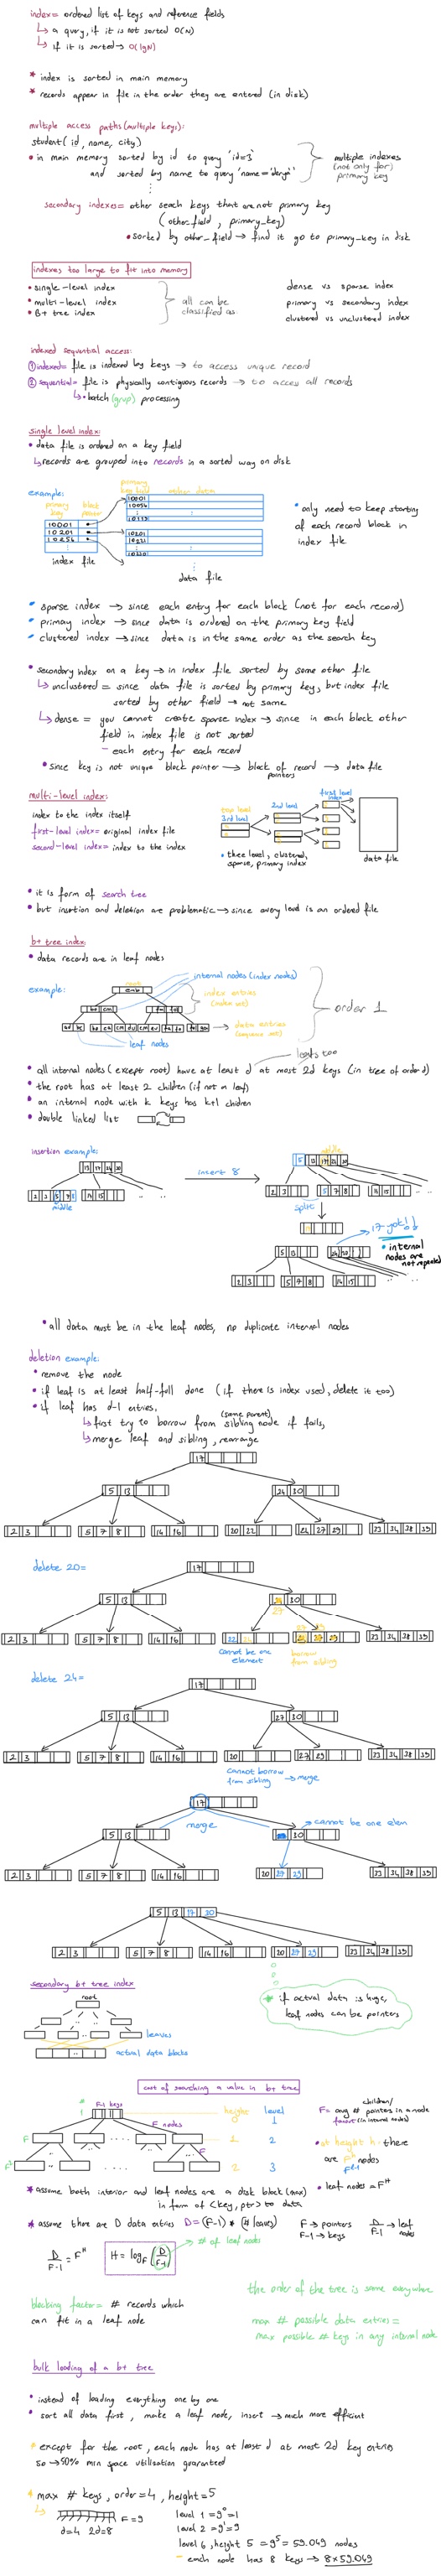 index= ordered list of keys and reference fields
↳ a query, if it is not sorted O(N)
↳ if it is sorted → O(lgN)
* index is sorted in main memory
* records appear in file in the order they are entered (in disk)
multiple access paths (multiple keys):
student( id, name, city)
• in main memory sorted by id to query 'id=3'
and sorted by name to query 'name='derya''
multiple indexes
(not only for)
primary key
secondary indexes= other seach keys that are not primary key
(other_field, primary_key)
• sorted by other_field → find it go to primary-key in disk
indexes too large to fit into memory
• single-level index
• multi-level index
• B+ tree index
all can be
classified as:
dense vs sparse index
primary vs secondary index
clustered vs unclustered index
indexed sequential access:
① indexed= file is indexed by keys → to access unique record
② sequential= file is physically contiguous records → to access all records
↳ • batch (grup) processing
single level index:
• data file is ordered on a key field
↳ records are grouped into records in a sorted way on disk
example:
primary key
block pointer
10001
10201
10256
index file
primary key field
10001
10054
10201
10221
data file
• only need to keep starting
of each record block in
index file
• sparse index → since each entry for each block (not for each record)
• primary index → since data is ordered on the primary key field
• clustered index → since data is in the same order as the search key
• secondary index on a key → in index file sorted by some other file
↳ unclustered = since data file is sorted by primary key, but index file
sorted by other field → not same
↳ dense = you cannot create sparse index → since in each block other
field in index file is not sorted
- each entry for each record
• since key is not unique block pointer → block of record → data file
pointers
multi-level index:
index to the index itself
first-level index= original index file
second-level index= index to the index
top level
3rd level
2nd level
first level
index
data file
• three level, clustered,
sparse, primary index
• it is form of search tree
• but insertion and deletion are problematic → since every level is an ordered file
b+ tree index:
• data records are in leaf nodes
example:
root
internal nodes (index nodes)
index entries
(index set)
data entries
(sequence set)
leaf nodes
order 1
leafs too
• all internal nodes (except root) have at least d at most 2d keys (in tree of order d)
• the root has at least 2 children (if not a leaf)
• an internal node with k keys has k+1 chidren
• double linked list
insertion example:
13 17 24 30
2 3 5 7 8
14 15
middle
insert 8
middle
5 13 17 24 30
2 3
5 7 8
14 15
split
17 yok!!
• internal
nodes are
not repeated
5 13
24 30
2 3
5 7 8
14 15
• all data must be in the leaf nodes, no duplicate internal nodes
deletion example:
• remove the node
• if leaf is at least half-full done (if there is index used, delete it too)
• if leaf has d-1 entries,
(same parent)
↳ first try to borrow from sibling node if fails,
↳ merge leaf and sibling, rearrange
17
5 13
24 30
2 3
5 7 8
14 16
20 22
24 27 29
33 34 38 39
delete 20=
17
5 13
30
27
2 3
5 7 8
14 16
22
33 34 38 39
cannot be one
element
borrow
from sibling
delete 24=
17
5 13
27 30
2 3
5 7 8
14 16
20
27 29
33 34 38 39
cannot borrow
from sibling → merge
17
merge
5 13
30
cannot be one elem
2 3
5 7 8
14 16
20 27 29
33 34 38 39
5 13 17 30
2 3
5 7 8
14 16
20 27 29
33 34 38 39
* if actual data is huge,
leaf nodes can be pointers
secondary b+ tree index
root
leaves
actual data blocks
cost of searching a value in b+ tree
F-1 keys
F nodes
height
level
1
1
2
2
3
F
F
F²
children/
F= avg # pointers in a node
fanout (in internal nodes)
• at height h there
are Fʰ nodes
• leaf nodes = Fᴴ
* assume both interior and leaf nodes are a disk block (max)
in form of <key, ptr> to data
* assume there are D data entries D=(F-1) * (# leaves)
F → pointers
F-1 → keys
D/F-1 → leaf nodes
D/F-1 = Fᴴ
H = log_F (D/F-1)
# of leaf nodes
blocking factor= # records which
can fit in a leaf node
the order of the tree is same everywhere
max # possible data entries =
max possible # keys in any internal node
bulk loading of a b+ tree
• instead of loading everything one by one
• sort all data first, make a leaf node, insert → much more efficient
* except for the root, each node has at least d at most 2d key entries
so → 50% min space utilisation guaranteed
* max # keys, order=4, height=5
↳ F=9
d=4 2d=8
level 1 = 9⁰=1
level 2 = 9¹=9
level 6, height 5 = 9⁵ = 59.049 nodes
- each node has 8 keys → 8×59.049